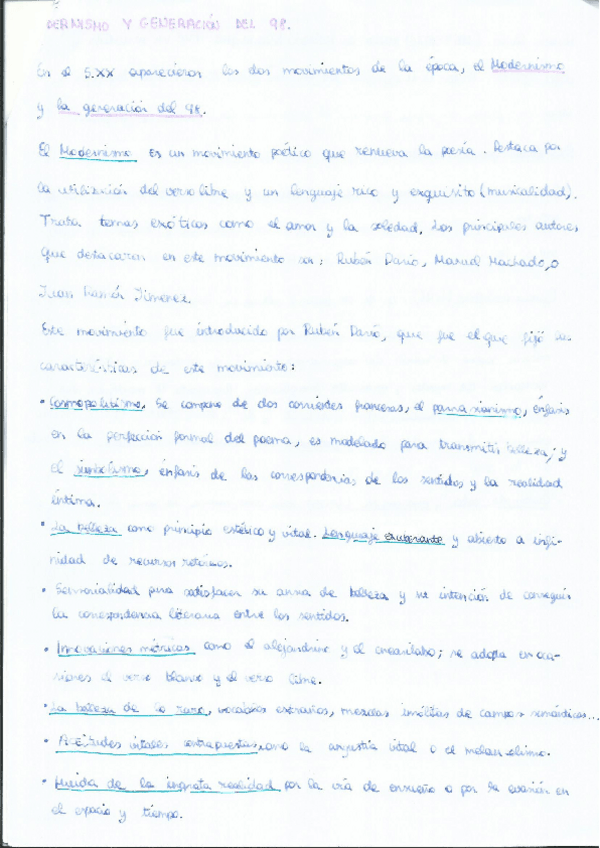 DERNISMO Y GENERACIÓN DEL 98.
En el S.XX aparecieron los dos movimientos de la época, el Modernismo
y la generación del 98.
El Modernismo es un movimiento poético que renueva la poesía. Destaca por
la utilización del verso libre y un lenguaje rico y exquisito (musicalidad).
Trata temas exóticos como el amor y la soledad. Los principales autores
que destacaron en este movimiento son: Rubén Darío, Manuel Machado, o
Juan Ramón Jimenez.
Este movimiento fue introducido por Rubén Darío, que fue el que fijó las
características de este movimiento:
· Cosmopolitismo. Se compone de dos corrientes francesas, el parnasianismo, énfasis
en la perfección formal del poema, es modelado para transmitir belleza; y
el simbolismo, énfasis de las correspondencias de los sentidos y la realidad
íntima.
· La belleza como principio estético y vital. Lenguaje exuberante y abierto a infi-
nidad de recursos retóricos.
· Sensorialidad para satisfacer su ansia de belleza y su intención de conseguir
la correspondencia literaria entre los sentidos.
· Innovaciones métricas como el alejandrino y el eneasílabo; se adopta en oca-
siones el verso blanco y el verso libre.
· La belleza de lo raro, vocablos extraños, mezclas insólitas de campos semánticos...
· Actitudes vitales contrapuestas, como la angustia vital o el
· Huida de la ingrata realidad por la vía de ensueño o por la evasión en
el espacio y tiempo.